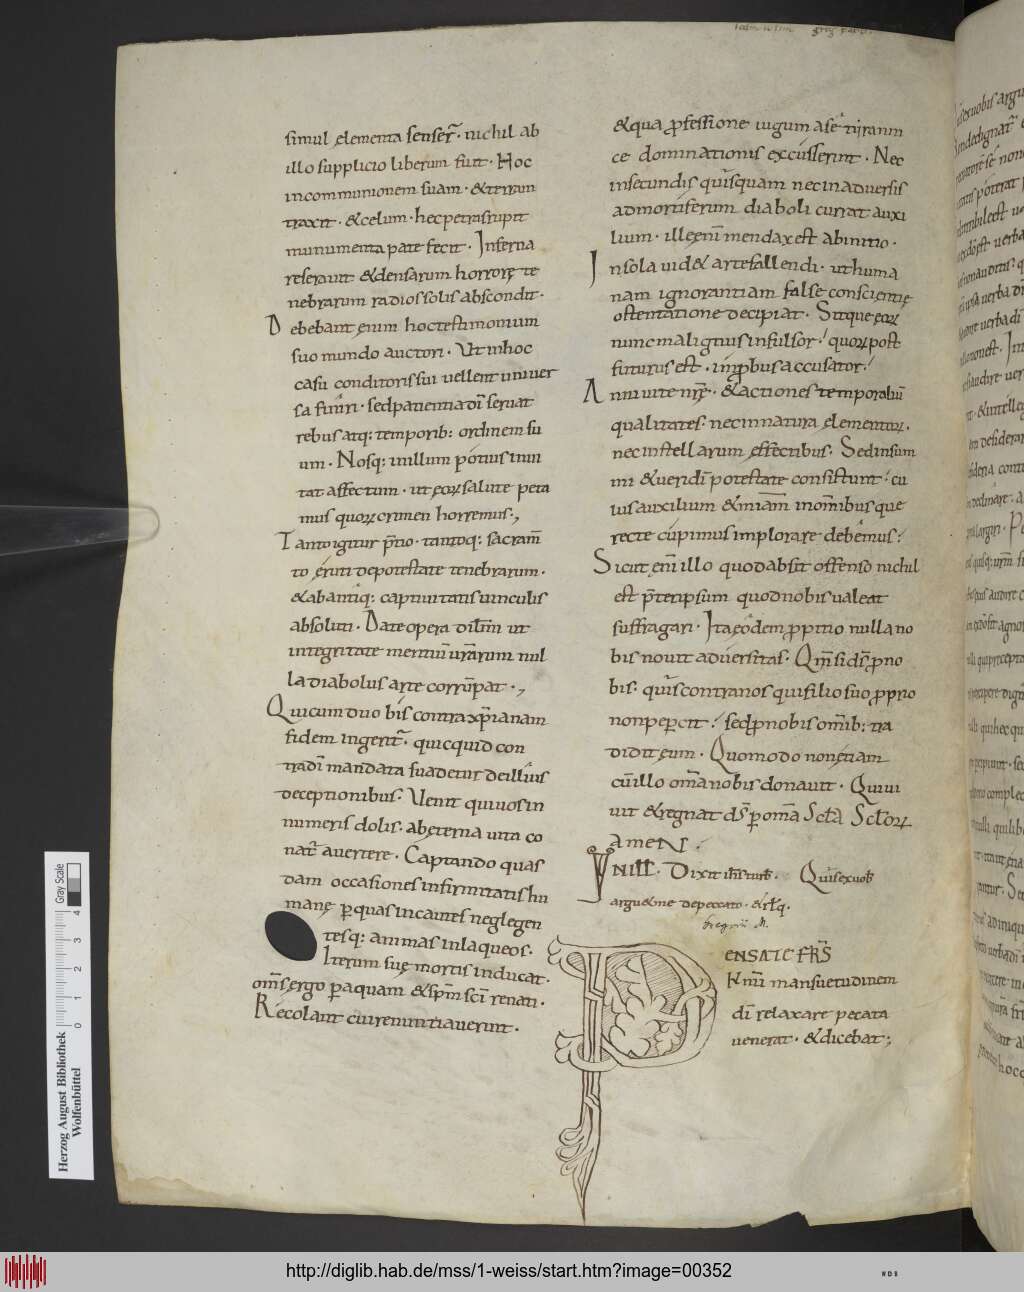 simul elementa senser̃. nichil ab
illo supplicio liberum fuit. Hoc
incommunionem suam. &terram
traxit. &celum. hec petras rupit
munumenta pate fecit. Inferna
reserauit &densarum horrore te
nebrarum radios solis abscondit.
Debebant enim hoc testimonium
suo mundo auctori. Ut inhoc
casu conditoris sui uellent univer
sa finiri. sed patientia dī seruat
rebus atq: temporib: ordinem su
um. Nosq: inillum potius inni
tat affectum. ut eoꝝ salute peta
mus quoꝝ crimen horremus.,
Tanto igitur p̄tio. tantoq: sacram̄
to eruti depotestate tenebrarum.
&abantiq: captiuitatis uinculis
absoluti. Date opera dil̄m̄ ut
integritate mentiū ūrarum nul
la diabolus arte corrūpat.,
Quicum duo bis contra xp̄ianam
fidem ingerit̄. quicquid con
tra dī mandata suadetur deillius
deceptionibus. Uenit qui uos in
numeris dolis. ab&erna uita co
nat̄ auertere. Captando quas
dam occasiones infirmitatis hu
mane p quas incautes neglegen
tesq: animas inlaqueos.
Iterum sue mortis inducat.
om̄s ergo p aquam &sp̄m sc̄i renati.
Recolant cui renuntiauerint.
&qua professione iugum a se tirann
ce dominationis excusserint. Nec
insecundis quisquam nec inaduersis
ad mortiferum diaboli currat auxi
lium. ille enī mendax est abinitio.
In sola uid& arte fallendi. ut huma
nam ignorantiam false conscientie
ostentatione decipiat. Sitque eoꝝ
nunc malignus infulsor. quoꝝ post
futurus est. improbus accusator.
Anni uite nr̄e. &actiones temporaliū
qualitates. nec innatura elementoꝝ.
nec instellarum effectibus. Sed insum
mi &ueri dī potestate consistunt. cu
ius auxilium &mīam inomnibus que
recte cupimus implorare debemus.
Sicut enī illo quod absit offenso nichil
est p̄ter ipsum quod nobis ualeat
suffragari. Ita eodem ppitio nulla no
bis nouit aduersitas. Qm̄ si ds̄ p no
bis. quis contra nos qui filio suo pprio
non pepercit. sed p nobis om̄ib: tra
didit eum. Quomodo non etiam
cū illo om̄a nobis donauit. Qui ui
uit &regnat ds̄ p om̄a Scl̄a Scl̄oꝝ
amen.
IN ill̄. Dixit ih̄s turb̄. Quis ex uob̄
argu& me de peccato. &rl̄q.
Gregorii M.
PENSATE FR̄S
Km̄i mansuetudinem
dī relaxare peccata
uenerat. &dicebat;
Herzog August Bibliothek
Wolfenbüttel
Gray Scale
0 1 2 3 4
http://diglib.hab.de/mss/1-weiss/start.htm?image=00352